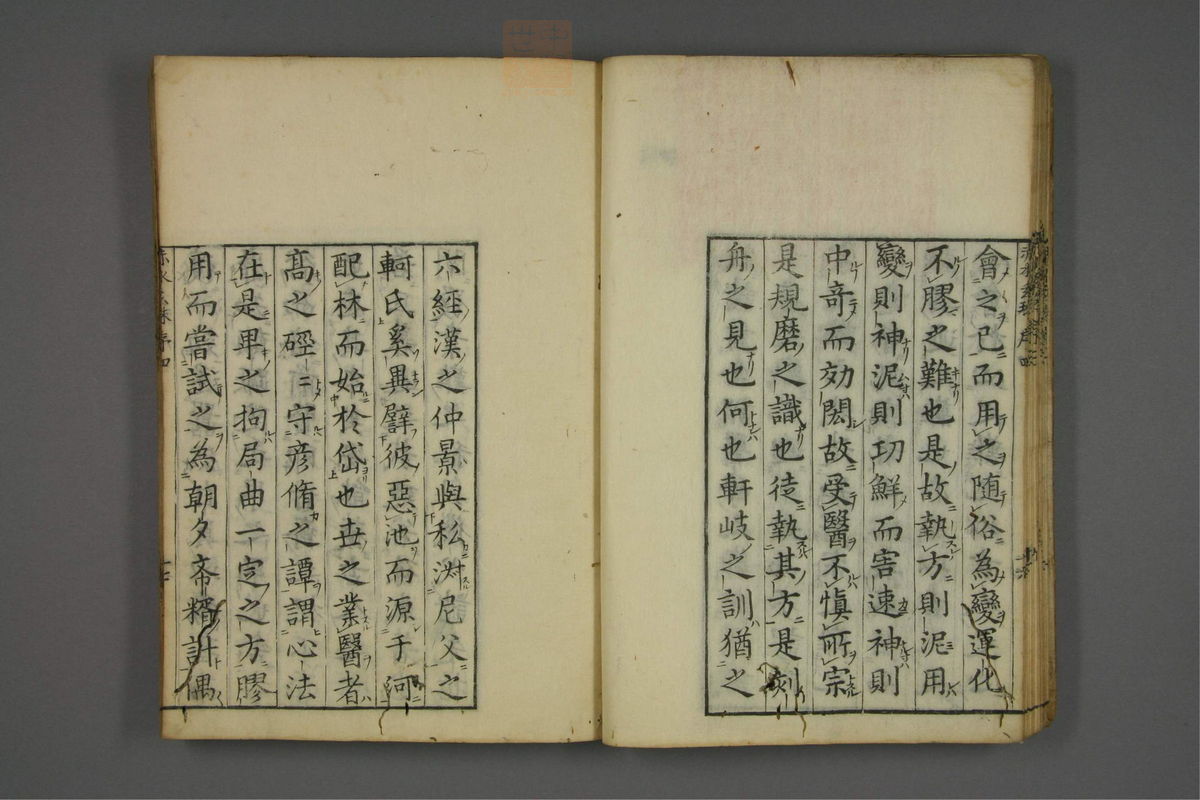 會之已而用之随俗為變運化
不膠之難也是故執方則泥用
變則神泥則功鮮而害速神則
中竒而効閎故受醫不慎所宗
是規磨之識也徒執其方是刻
舟之見也何也軒岐之訓猶之
六經漢之仲景與私淑尼父之
軻氏奚異譬彼惡池而源于河
配林而始於岱也世之業醫者
髙之硜〻守彦脩之譚謂心法
在是卑之拘局曲一定之方膠
用而嘗試之為朝夕齋糈計偶